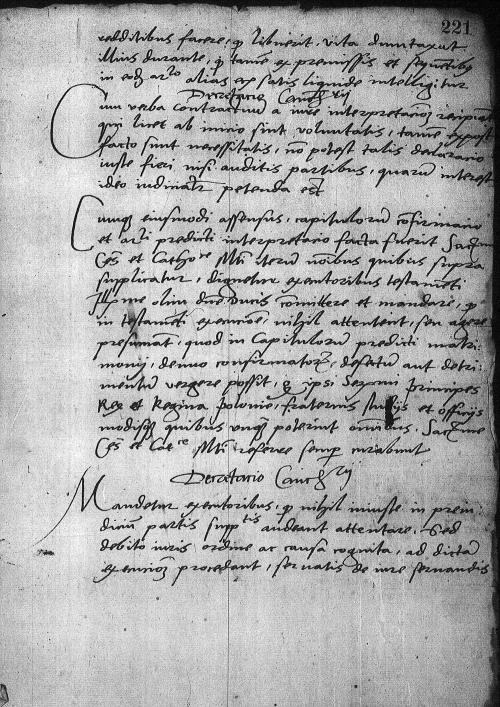 221
redditibus facere, q libuerit, vita duntaxat
illius durante, q tamē ex premissis et sequētibꝫ
in eodē arlo alias ex satis liquide intelligitur
Decretacio Cancrij
Cum verba contractuum a iure interpretacionē recipiant
qui licet ab inicio sint voluntatis, tamē ex post
facto sunt necessitatis, nō potest talis declaracio
iuste fieri nisi auditis partibus, quarum interest
ideo iudicialr petenda est
Cumqꝫ eiusmodi assensus, capitulorum cōfirmacio
et arti predicti interpretacio facta fuerit
Ces et Cathoce Mti iterum nōibus quibus supra
supplicatur, dignetur executoribus testamēti
Illme olim dne Ducis cōmittere et mandare, q
in testamēti execucione, nihil attentent, seu agere
presumant, quod in Capitulorum predicti matri
monij, denuo confirmator, defectum aut detri
mentum vergere possit, q ipsi Sermi principes
Rex et Regina Polonie, fraternis studijs et officijs
modisqꝫ quibus unqꝫ poterint omnibus, Sacme
Ces et Catce Mti referre semp curabunt
Decretacio Cancrij
Mandetur executoribus, q nihil iniuste in preiu
dicium partis supptis audeant attentare, Sed
debito iuris ordine ac causa cognita, ad dictam
execucionē procedant, servatis de iure servandis